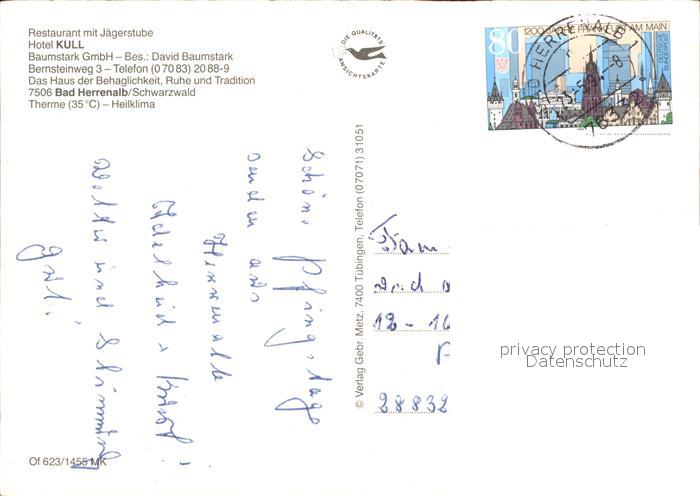 Restaurant mit Jägerstube
Hotel KULL
Baumstark GmbH – Bes.: David Baumstark
Bernsteinweg 3 – Telefon (07083) 2088-9
Das Haus der Behaglichkeit, Ruhe und Tradition
7506 Bad Herrenalb/Schwarzwald
Therme (35°C) – Heilklima
DIE QUALITÄTS
ANSICHTSKARTE
80 1200 JAHRE FRANKFURT AM MAIN
DEUTSCHE BUNDESPOST
HERRENALB 1
Schöne Pfingstage
senden aus
Herrenalb
© Verlag Gebr. Metz, 7400 Tübingen, Telefon (07071) 31051
Fam
12 - 16
28832
privacy protection
Datenschutz
Of 623/1455 MK